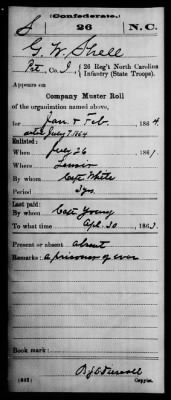 (Confederate.)
S 26 N.C.
G. W. Shell
Pvt., Co. I, 26 Reg't North Carolina
Infantry (State Troops).
Appears on
Company Muster Roll
of the organization named above,
for Jan & Feb, 1864
July 7 1864
Enlisted:
When July 26, 1861
Where Lenoir
By whom Capt White
Period 3 yrs
Last paid:
By whom Capt Young
To what time Apl. 30, 1863
Present or absent absent
Remarks: A prisoner of war
Book mark:
(642)
Copyist.